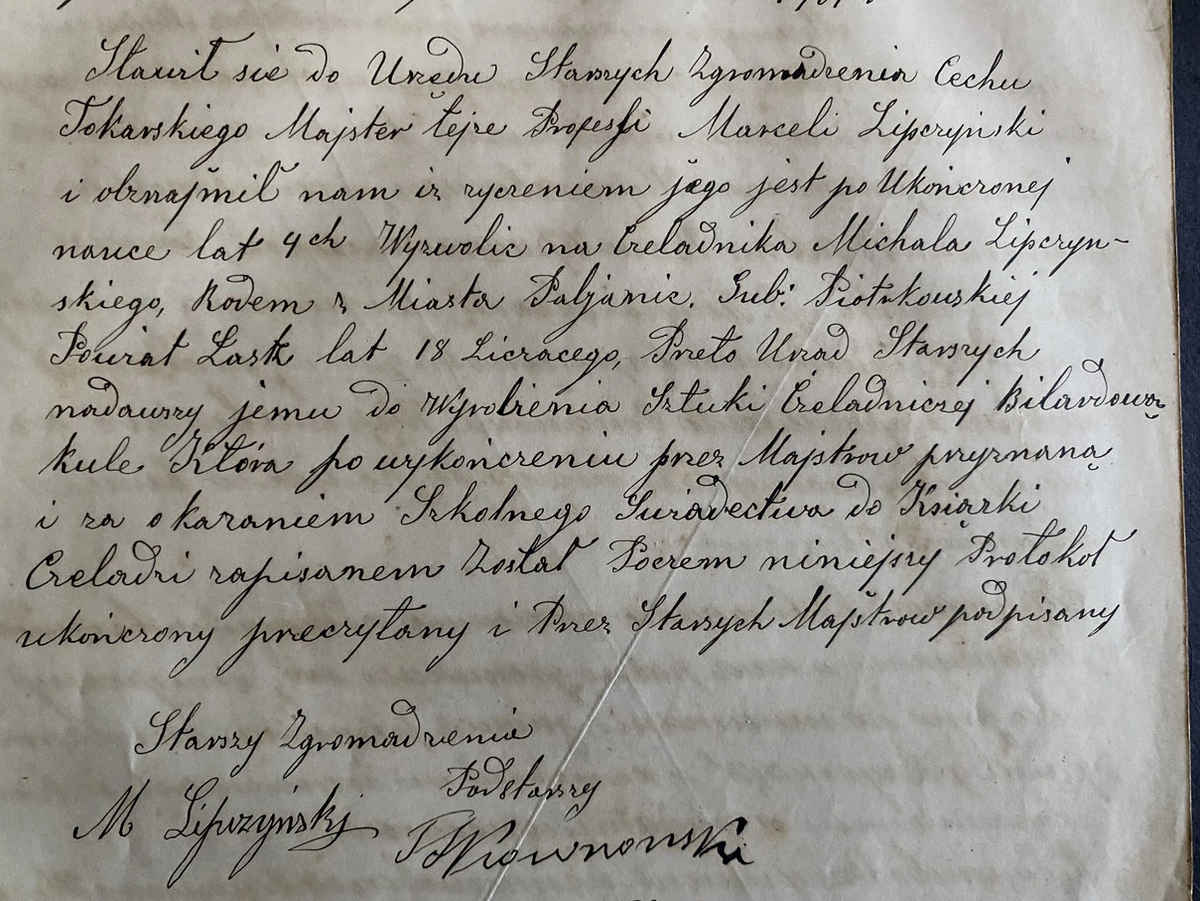 Stawił sie do Urzędu Starszych Zgromadzenia Cechu
Tokarskiego Majster tejże Profesfi Marceli Lipczyński
i obznajmił nam iż życzeniem jego jest po Ukończonej
nauce lat 4ch Wyzwolic na Czeladnika Michała Lipczyn-
skiego, Rodem z Miasta Pabjanic. Gub: Piotrkowskiéj
Powiat Łask lat 18 Liczacego, Przeto Urzad Starszych
nadawszy jemu do Wyrobienia Sztuki Czeladniczej Bilardową
kule Która po wykończeniu przez Majstrow przyznaną
i za okazaniem Szkolnego Swiadectwa do Ksiązki
Czeladzi zapisanem Został Poczem niniejszy Protokoł
ukończony preczytany i Przez Starszych Majstrow podpisany
Starszy Zgromadzenia
Podstarszy
M Lipczyńskj